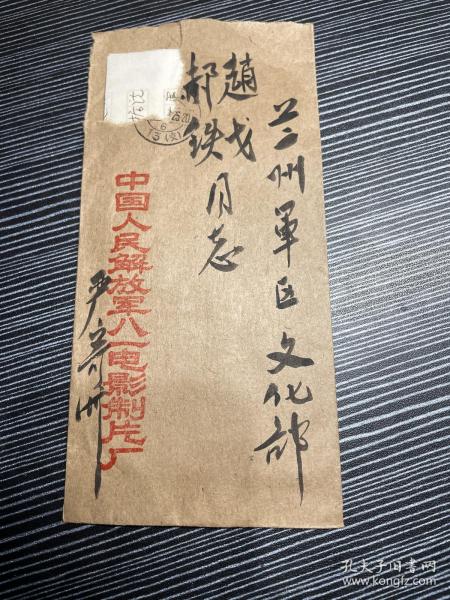 兰州軍区文化部
趙戈
郝鉄同志
中国人民解放军八一电影制片厂
严寄洲
孔夫子旧书网
www.kongfz.com